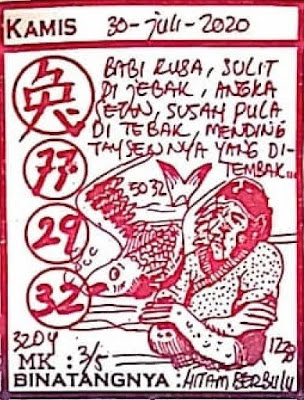 KAMIS 30-juli-2020
BABI RUSA, SULIT
DI JEBAK, ANGKA
SETAN, SUSAH PULA
DI TEBAK, MENDING
TAYSEN NYA YANG DI-
TEMBAK...
兔
77
29
32
5032
3204
1220
MK : 3/5
BINATANGNYA : HITAM BERBULU